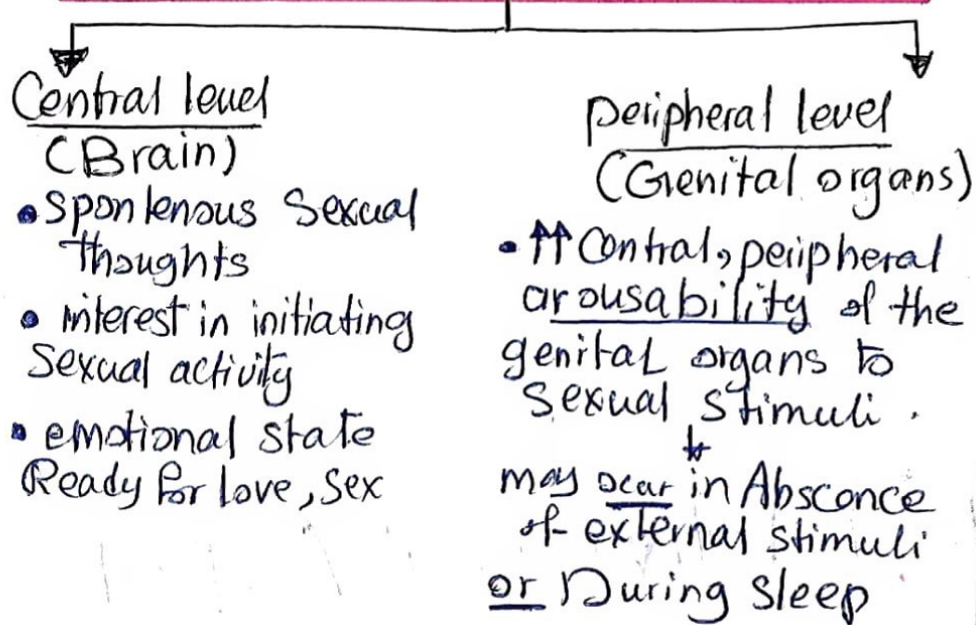 Central level
(Brain)
• spontenous Sexual
thoughts
• interest in initiating
Sexual activity
• emotional state
Ready for love, sex
peripheral level
(Genital organs)
• ↑↑ Central, peripheral
arousability of the
genital organs to
sexual stimuli .
↓
may ocar in Absconce
of external stimuli
or During sleep